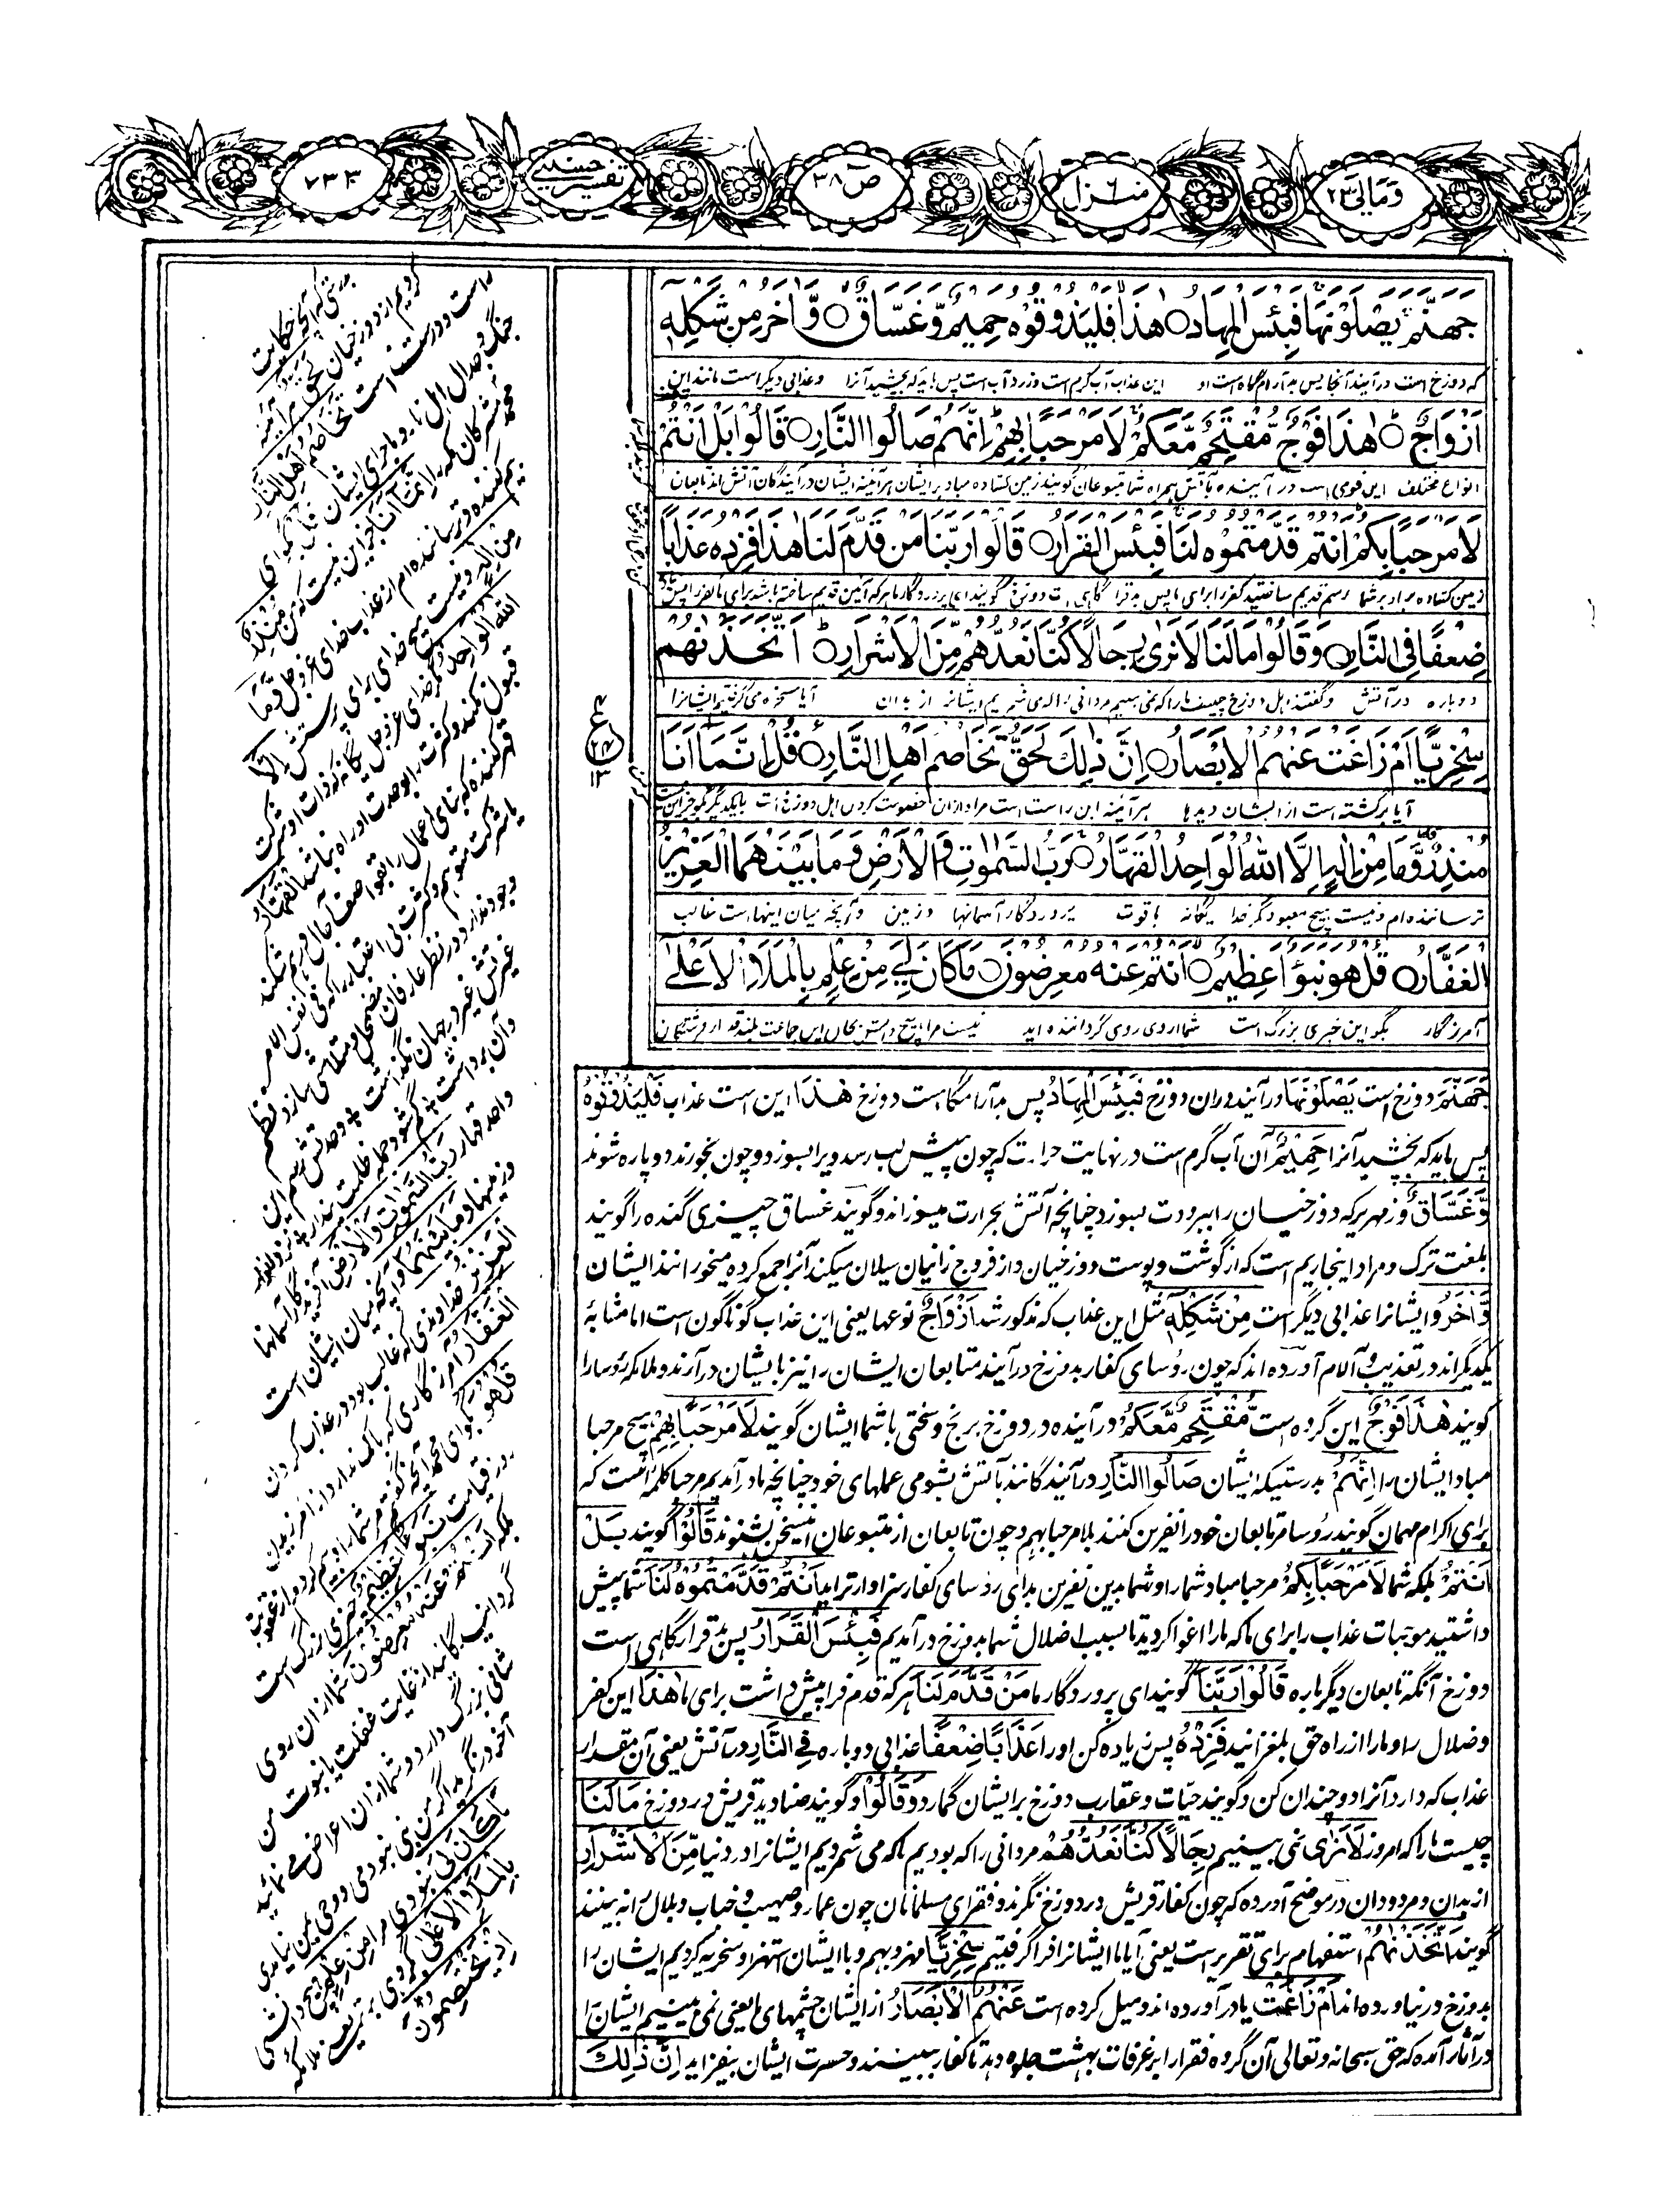 ومالی ۲۳
منزل ۶
ص ۳۸
تفسیر حسینی
۷۳۳
جَهَنَّمَ يَصْلَوْنَهَا فَبِئْسَ الْمِهَادُ هٰذَا فَلْيَذُوقُوهُ حَمِيمٌ وَّغَسَّاقٌ وَّاٰخَرُ مِنْ شَكْلِهٖ
که دوزخ است درآیند آنجا پس بد آرامگاه است او این عذاب آب گرم است وزرد آب است پس باید که بچشید آنرا وعذابی دیگر است مانند این
اَزْوَاجٌ هٰذَا فَوْجٌ مُّقْتَحِمٌ مَّعَكُمْ لَا مَرْحَبًا بِهِمْ اِنَّهُمْ صَالُوا النَّارِ قَالُوْا بَلْ اَنْتُمْ
انواع مختلف این فوجی است در آینده بآتش همراه شما متبوعان گویند زمین کشاده مباد بر ایشان هر آئینه ایشان درآیندگان آتش اند تابعان
لَا مَرْحَبًا بِكُمْ اَنْتُمْ قَدَّمْتُمُوْهُ لَنَا فَبِئْسَ الْقَرَارُ قَالُوْا رَبَّنَا مَنْ قَدَّمَ لَنَا هٰذَا فَزِدْهُ عَذَابًا
زمین کشاده مباد بر شما رسم قدیم ساختید کفر را برای ما پس بد قرارگاهی است دوزخ گویند ای پروردگار ما هر که آئین قدیم ساخته باشد برای ما کفر را پس
ضِعْفًا فِي النَّارِ وَقَالُوْا مَا لَنَا لَا نَرٰى رِجَالًا كُنَّا نَعُدُّهُمْ مِّنَ الْاَشْرَارِ اَتَّخَذْنٰهُمْ
دوباره در آتش وگفتند اهل دوزخ چیست مارا که نمی بینیم مردانی را که می شمردیم ایشانرا از بدان آیا مسخره می گرفتیم ایشانرا
سِخْرِيًّا اَمْ زَاغَتْ عَنْهُمُ الْاَبْصَارُ اِنَّ ذٰلِكَ لَحَقٌّ تَخَاصُمُ اَهْلِ النَّارِ قُلْ اِنَّمَا اَنَا
آیا برگشته است از ایشان دیدها هر آئینه این راست است مراد ازان خصومت کردن اهل دوزخ است بایکدیگر بگو جز این نیست
مُنْذِرٌ وَّمَا مِنْ اِلٰهٍ اِلَّا اللّٰهُ الْوَاحِدُ الْقَهَّارُ رَبُّ السَّمٰوٰتِ وَالْاَرْضِ وَمَا بَيْنَهُمَا الْعَزِيزُ
ترساننده ام ونیست هیچ معبود مگر خدا یگانه با قوت پروردگار آسمانها وزمین وآنچه میان اینهاست غالب
الْغَفَّارُ قُلْ هُوَ نَبَؤٌا عَظِيمٌ اَنْتُمْ عَنْهُ مُعْرِضُونَ مَا كَانَ لِيَ مِنْ عِلْمٍ بِالْمَلَاِ الْاَعْلٰى
آمرزگار بگو این خبری بزرگ است شما از وی روی گرداننده اید نیست مرا هیچ دانش بحال این جماعت بلند قدر از فرشتگان
جَهَنَّمَ دوزخ است يَصْلَوْنَهَا درآیند دران دوزخ فَبِئْسَ الْمِهَادُ پس بد آرامگاست دوزخ هٰذَا این است عذاب فَلْيَذُوقُوهُ
پس باید که بچشید آنرا حَمِيمٌ آن آب گرم است در نهایت حرارت که چون پیش لب رسد ویرا بسوزد وچون بخورند دوپاره شوند
وَّغَسَّاقٌ وزمهریر که دوزخیان را ببرودت بسوزد چنانچه آتش بحرارت میسوزاند وگویند غساق چیزی گنده را گویند
بلغت ترک ومراد اینجا ریم است که از گوشت وپوست دوزخیان واز فروج زانیان سیلان میکند آنرا جمع کرده میخورانند ایشان
وَّاٰخَرُ وایشانرا عذابی دیگر است مِنْ شَكْلِهٖ مثل این عذاب که مذکور شد اَزْوَاجٌ نوعها یعنی این عذاب گوناگون است اما مشابه
یکدیگر اند در تعذیب وآلام آورده اند که چون رؤسای کفار بدوزخ درآیند متابعان ایشان را نیز با ایشان درآرند وملائکه رؤسا را
گویند هٰذَا فَوْجٌ این گرده ست مُّقْتَحِمٌ مَّعَكُمْ درآینده در دوزخ برنج وسختی باشما ایشان گویند لَا مَرْحَبًا بِهِمْ هیچ مرحبا
مبادا ایشان را اِنَّهُمْ بدرستیکه ایشان صَالُوا النَّارِ درآیندگانند بآتش بشومی عملهای خود چنانچه ما درآمدیم مرحبا کلمه ایست که
برای اکرام مهمان گویند رؤسا مر تابعان خود را نفرین کنند بلا مرحبا بهم وچون تابعان از متبوعان این سخن بشنوند قَالُوْا گویند بَلْ
اَنْتُمْ بلکه شما لَا مَرْحَبًا بِكُمْ مرحبا مباد شما را وشما بدین نفرین بدای رؤسای کفار سزاوارترید اَنْتُمْ قَدَّمْتُمُوْهُ لَنَا شما پیش
داشتید موجبات عذاب را برای ما که ما را اغوا کردید تا بسبب اضلال شما بدوزخ درآمدیم فَبِئْسَ الْقَرَارُ پس بد قرارگاهی است
دوزخ آنگه تابعان دیگر باره قَالُوْا رَبَّنَا گویند ای پروردگار ما مَنْ قَدَّمَ لَنَا هر که قدم فرا پیش داشت برای ما هٰذَا این کفر
وضلال را ومارا از راه حق بلغزانید فَزِدْهُ پس زیاده کن او را عَذَابًا ضِعْفًا عذابی دوباره فِي النَّارِ در آتش یعنی آن مقدار
عذاب که دارد آنرا دوچندان کن وگویند حیات وعقارب دوزخ برایشان گمارد وَقَالُوْا وگویند صنادید قریش در دوزخ مَا لَنَا
چیست مارا که امروز لَا نَرٰى نمی بینیم رِجَالًا كُنَّا نَعُدُّهُمْ مردانی را که بودیم ما که می شمردیم ایشانرا در دنیا مِّنَ الْاَشْرَارِ
از بدان ومردودان در موضح آورده که چون کفار قریش در دوزخ نگرند وفقرای مسلمانان چون عمار وصهیب وخباب وبلال را نه بینند
گویند اَتَّخَذْنٰهُمْ استفهام برای تقریر است یعنی آیا ما ایشانرا فرا گرفتیم سِخْرِيًّا وبا ایشان استهزا وسخریه کردیم ایشان را
بدوزخ در نیاورده اند اَمْ زَاغَتْ یا درآورده اند ومیل کرده است عَنْهُمُ الْاَبْصَارُ از ایشان چشمهای ما یعنی نمی بینیم ایشان را
در آثار آمده که حق سبحانه وتعالی آن گروه فقرا را بر غرفات بهشت جلوه دهد تا کفار ببینند وحسرت ایشان بیفزاید اِنَّ ذٰلِكَ
بدرستی که آنچه حکایت
کردیم از دوزخیان لَحَقٌّ هر آئینه
راست ودرست است تَخَاصُمُ اَهْلِ النَّارِ
جنگ وجدال اهل نار وماجرای ایشان قُلْ بگو ای
محمد مشرکان مکه را اِنَّمَا اَنَا جز این نیست که من مُنْذِرٌ
بیم کننده وترساننده ام از عذاب خدای عزوجل وَّمَا
مِنْ اِلٰهٍ ونیست هیچ خدای برای پرستش اِلَّا
اللّٰهُ الْوَاحِدُ مگر خدای عزوجل یگانه که ذات او شرکت
قبول نکند وکثرت را بوحدت او راه نباشد الْقَهَّارُ
قهر کننده که بنای آمال را بقواصف آجال در هم شکند
وجود ندارد ودر نظر عارفان مضمحل ومتلاشی سازد نظم
غیرتش غیر در جهان نگذاشت وحدتش اسم این
وآن برداشت گم شود جمله ظلمت پندار نزد انوار
واحد قهار رَبُّ السَّمٰوٰتِ وَالْاَرْضِ آفریدگار آسمانها
وزمینها وَمَا بَيْنَهُمَا وآنچه میان ایشان است
الْعَزِيزُ خداوندی که غالب بود در عذاب کردن
الْغَفَّارُ آمرزگاری که باک ندارد از آمرزیدن
قُلْ هُوَ بگو ای محمد آنچه گفتم مر شما را وبیم کردم از عقوبت
روز قیامت نَبَؤٌا عَظِيمٌ خبری بزرگ است
بلکه اَنْتُمْ عَنْهُ مُعْرِضُونَ شما ازان روی
گردانیدگانید از غایت غفلت یا نبوت من
شانی بزرگ دارد وشما ازان اعراض می نمائید
آخر در نگرید اگر من نبی نبودمی ووحی بمن نیامدی
مَا كَانَ لِيَ نبودی مرا مِنْ عِلْمٍ هیچ دانشی
بِالْمَلَاِ الْاَعْلٰى بگروهی برتر یعنی ملائکه
اِذْ يَخْتَصِمُونَ